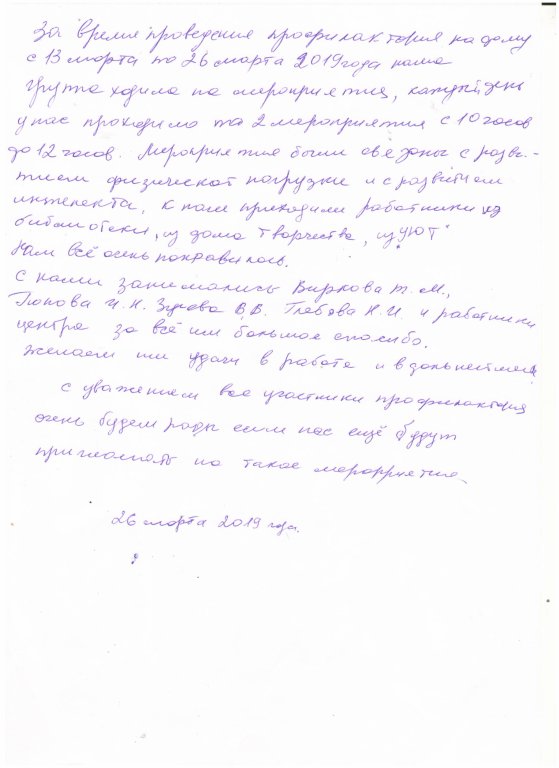 За время проведения профилактория на дому
с 13 марта по 26 марта 2019 года наша
группа ходила на мероприятия, каждый день
у нас проходило по 2 мероприятия с 10 часов
до 12 часов. Мероприятия были связаны с разви-
тием физической нагрузки и с развитием
интелекта, к нам приходили работники из
библиотеки, из дома творчества, из "УЮТ"
Нам всё очень понравилось.
С нами занимались Биркова Т. М.,
Попова И. Н. Зуева В.В. Глебова Н. И. и работники
центра за всё им большое спасибо.
Желаем им удачи в работе и в дальнейшем
с уважением все участники профилактория
очень будем рады если нас ещё будут
приглашать на такое мероприятие.
26 марта 2019 года.